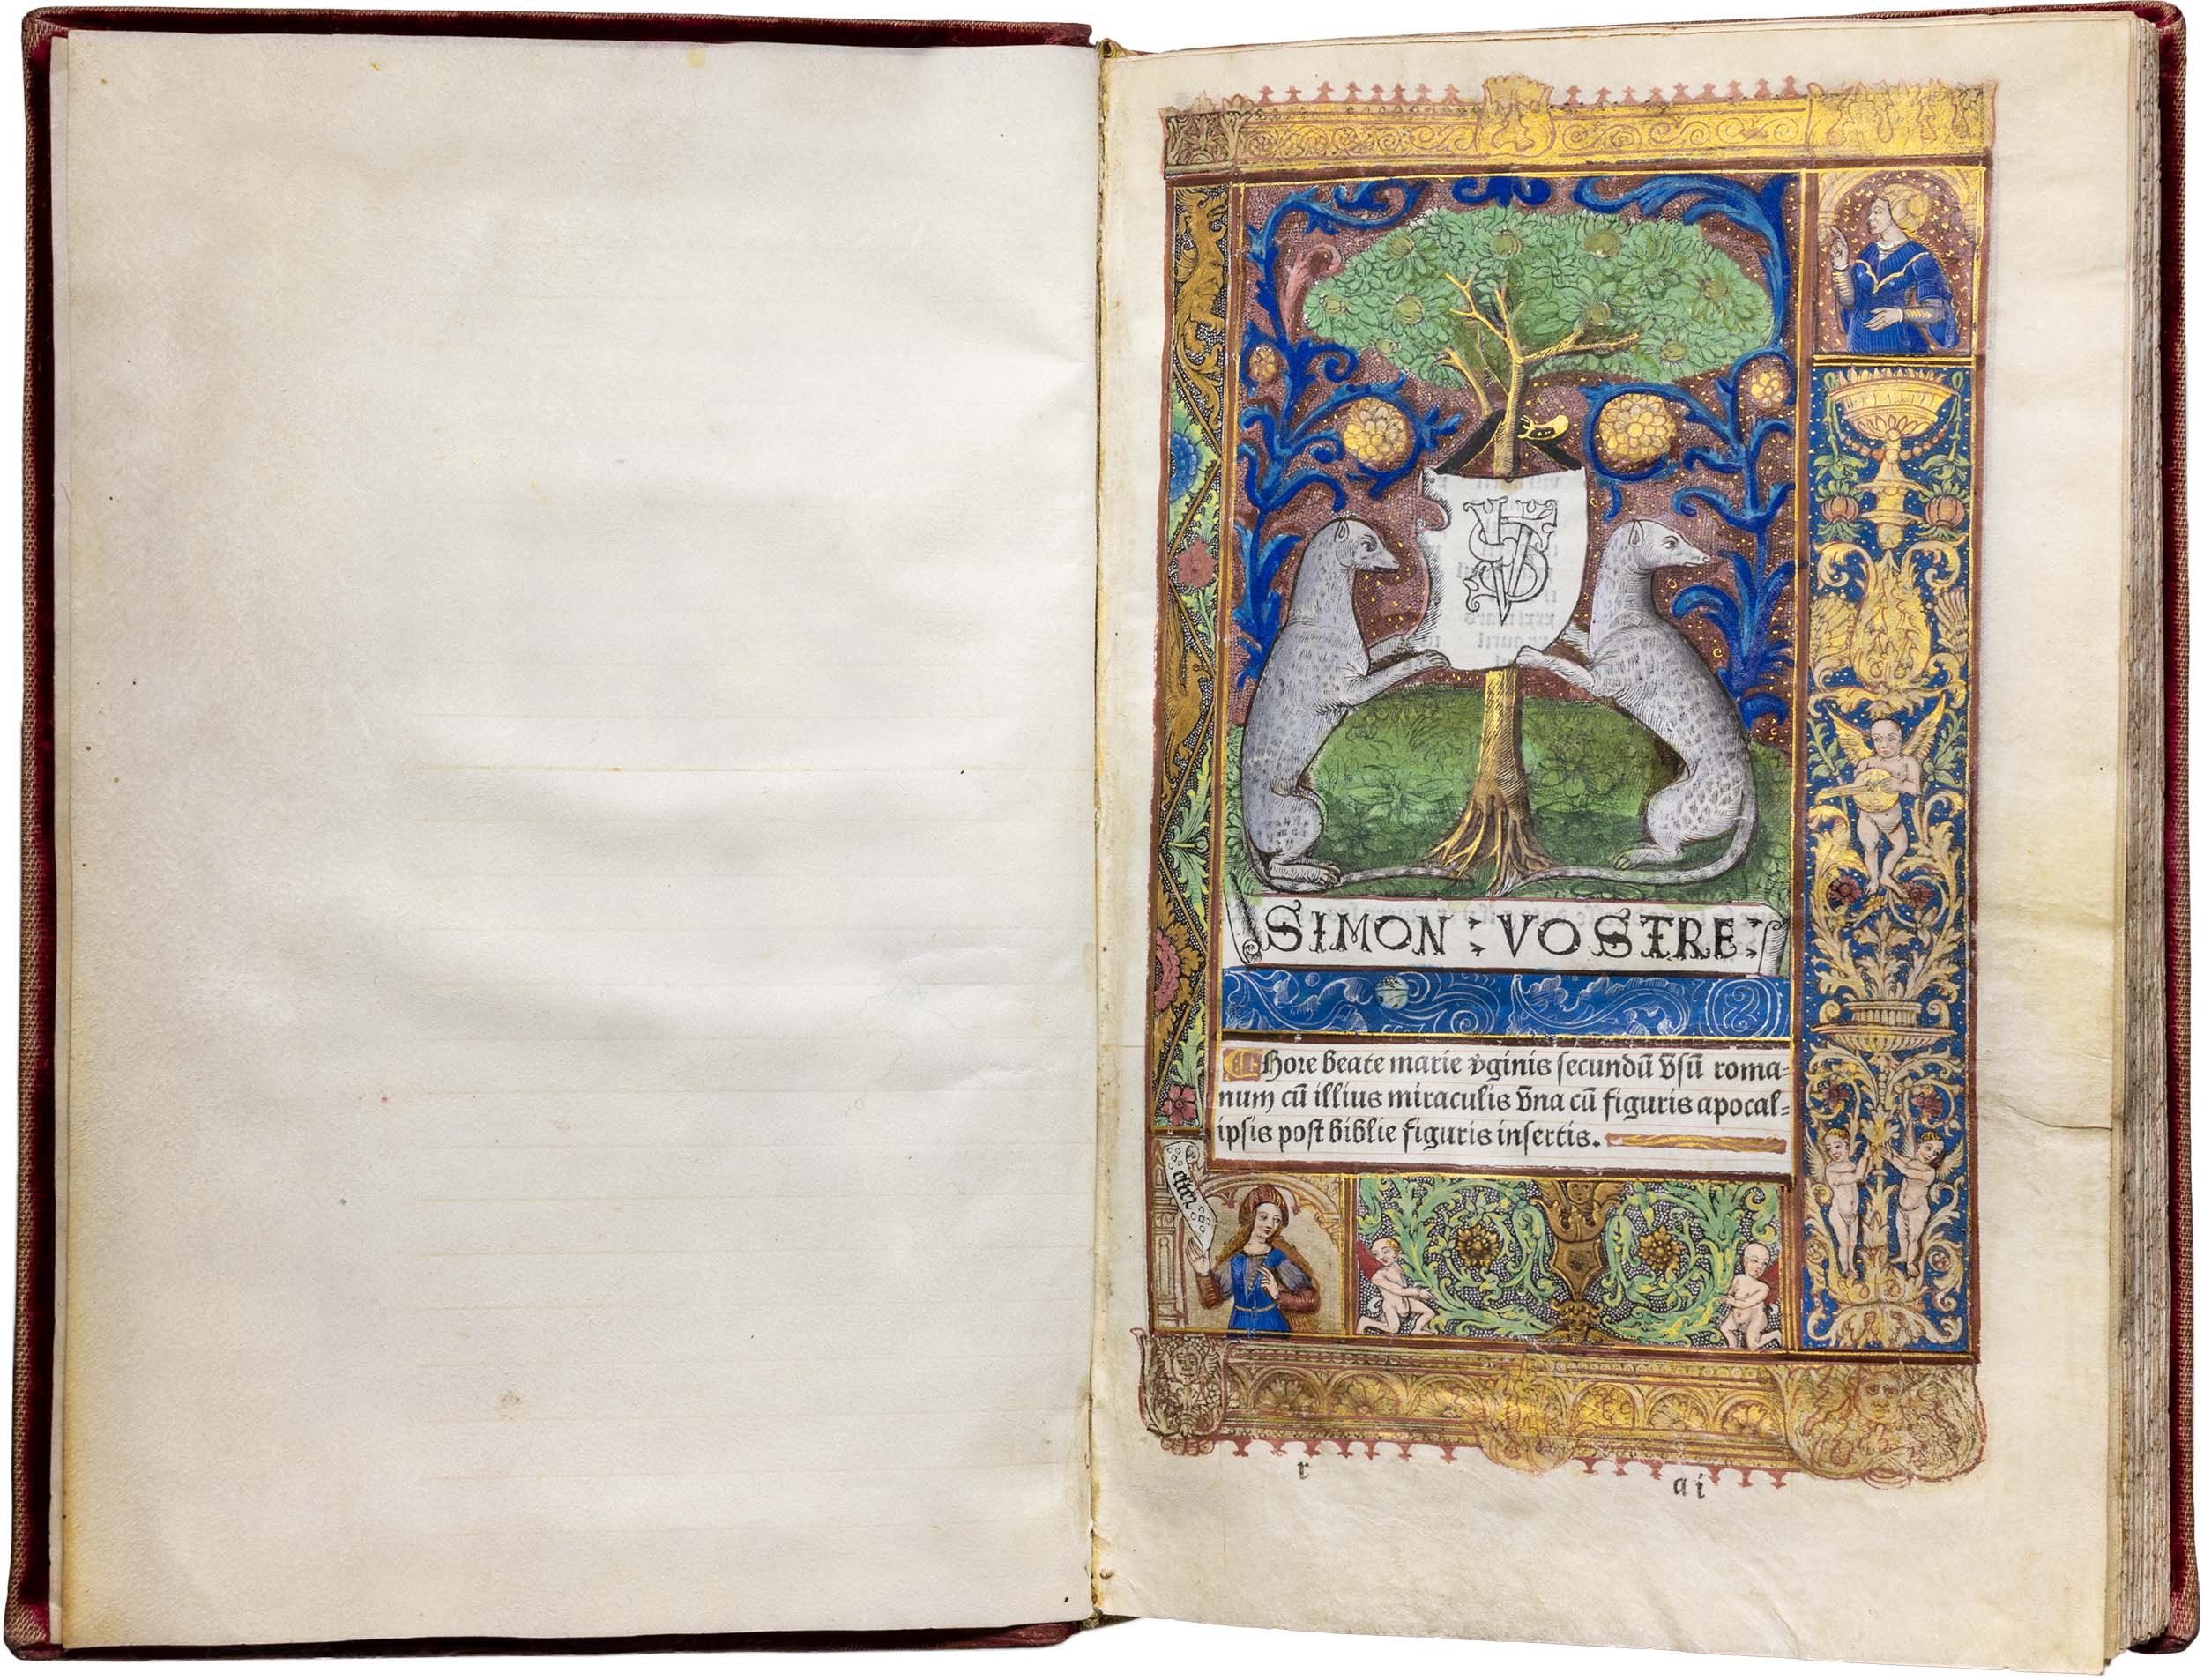 SV
SIMON : VOSTRE :
Hore beate marie v̄ginis secundū vsū roma=
num cū illius miraculis vna cū figuris apocal=
ipsis post biblie figuris insertis.
r
a i